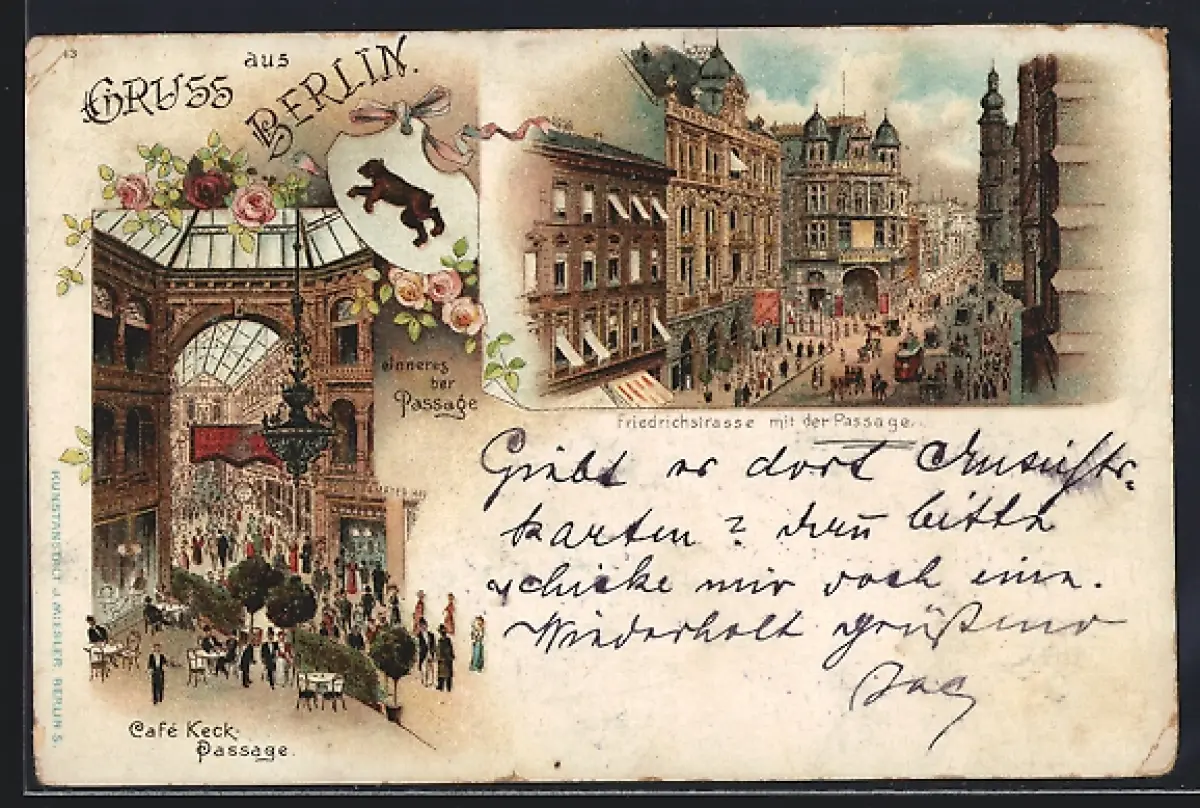 43
GRUSS aus
BERLIN.
Inneres
der
Passage
Friedrichstrasse mit der Passage.
Giebt es dort Ansichts-
karten? denn bitte
schicke mir doch eine.
Wiederholt grüßend
Café Keck.
Passage.
KUNSTANSTALT J. MIESLER, BERLIN S.